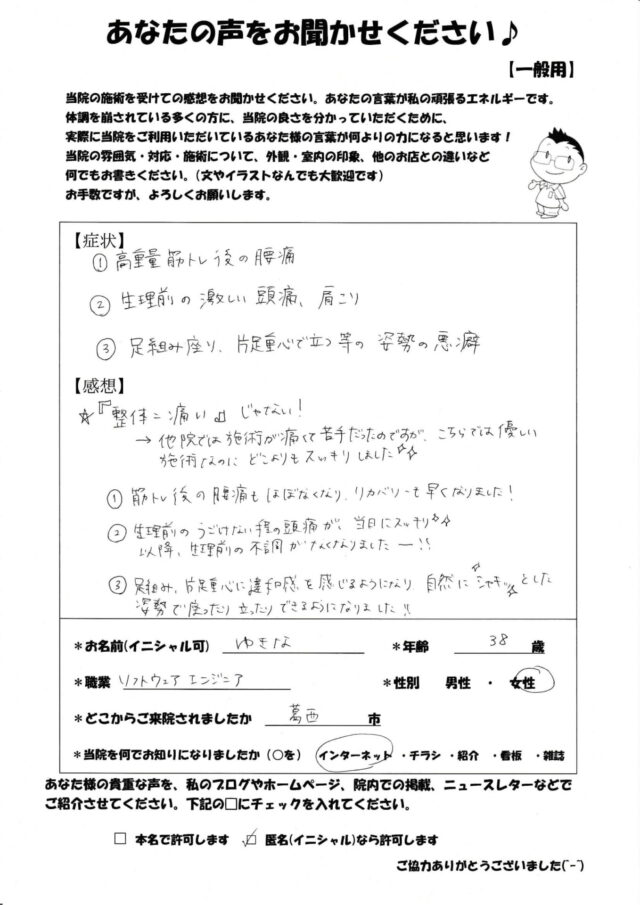 あなたの声をお聞かせください♪
【一般用】
当院の施術を受けての感想をお聞かせください。あなたの言葉が私の頑張るエネルギーです。
体調を崩されている多くの方に、当院の良さを分かっていただくために、
実際に当院をご利用いただいているあなた様の言葉が何よりの力になると思います!
当院の雰囲気・対応・施術について、外観・室内の印象、他のお店との違いなど
何でもお書きください。(文やイラストなんでも大歓迎です)
お手数ですが、よろしくお願いします。
【症状】
① 高重量筋トレ後の腰痛
② 生理前の激しい頭痛、肩こり
③ 足組み座り、片足重心で立つ等の姿勢の悪癖
【感想】
☆『整体=痛い』じゃない!
→ 他院では施術が痛くて苦手だったのですが、こちらでは優しい
施術なのにどこよりもスッキリしました☆☆
① 筋トレ後の腰痛もほぼなくなり、リカバリーも早くなりました!
② 生理前のうごけない程の頭痛が、当日にスッキリ☆☆
以降、生理前の不調がなくなりましたー!!
③ 足組み、片足重心に違和感を感じるようになり、自然に"シャキッ"とした
姿勢で座ったり立ったりできるようになりました!!
*お名前(イニシャル可) ゆきな *年齢 38 歳
*職業 ソフトウェアエンジニア *性別 男性 ・ 女性
*どこからご来院されましたか 葛西 市
*当院を何でお知りになりましたか(○を) インターネット ・チラシ ・紹介 ・看板 ・雑誌
あなた様の貴重な声を、私のブログやホームページ、院内での掲載、ニュースレターなどで
ご紹介させてください。下記の□にチェックを入れてください。
□ 本名で許可します ☑ 匿名(イニシャル)なら許可します
ご協力ありがとうございました(^-^)